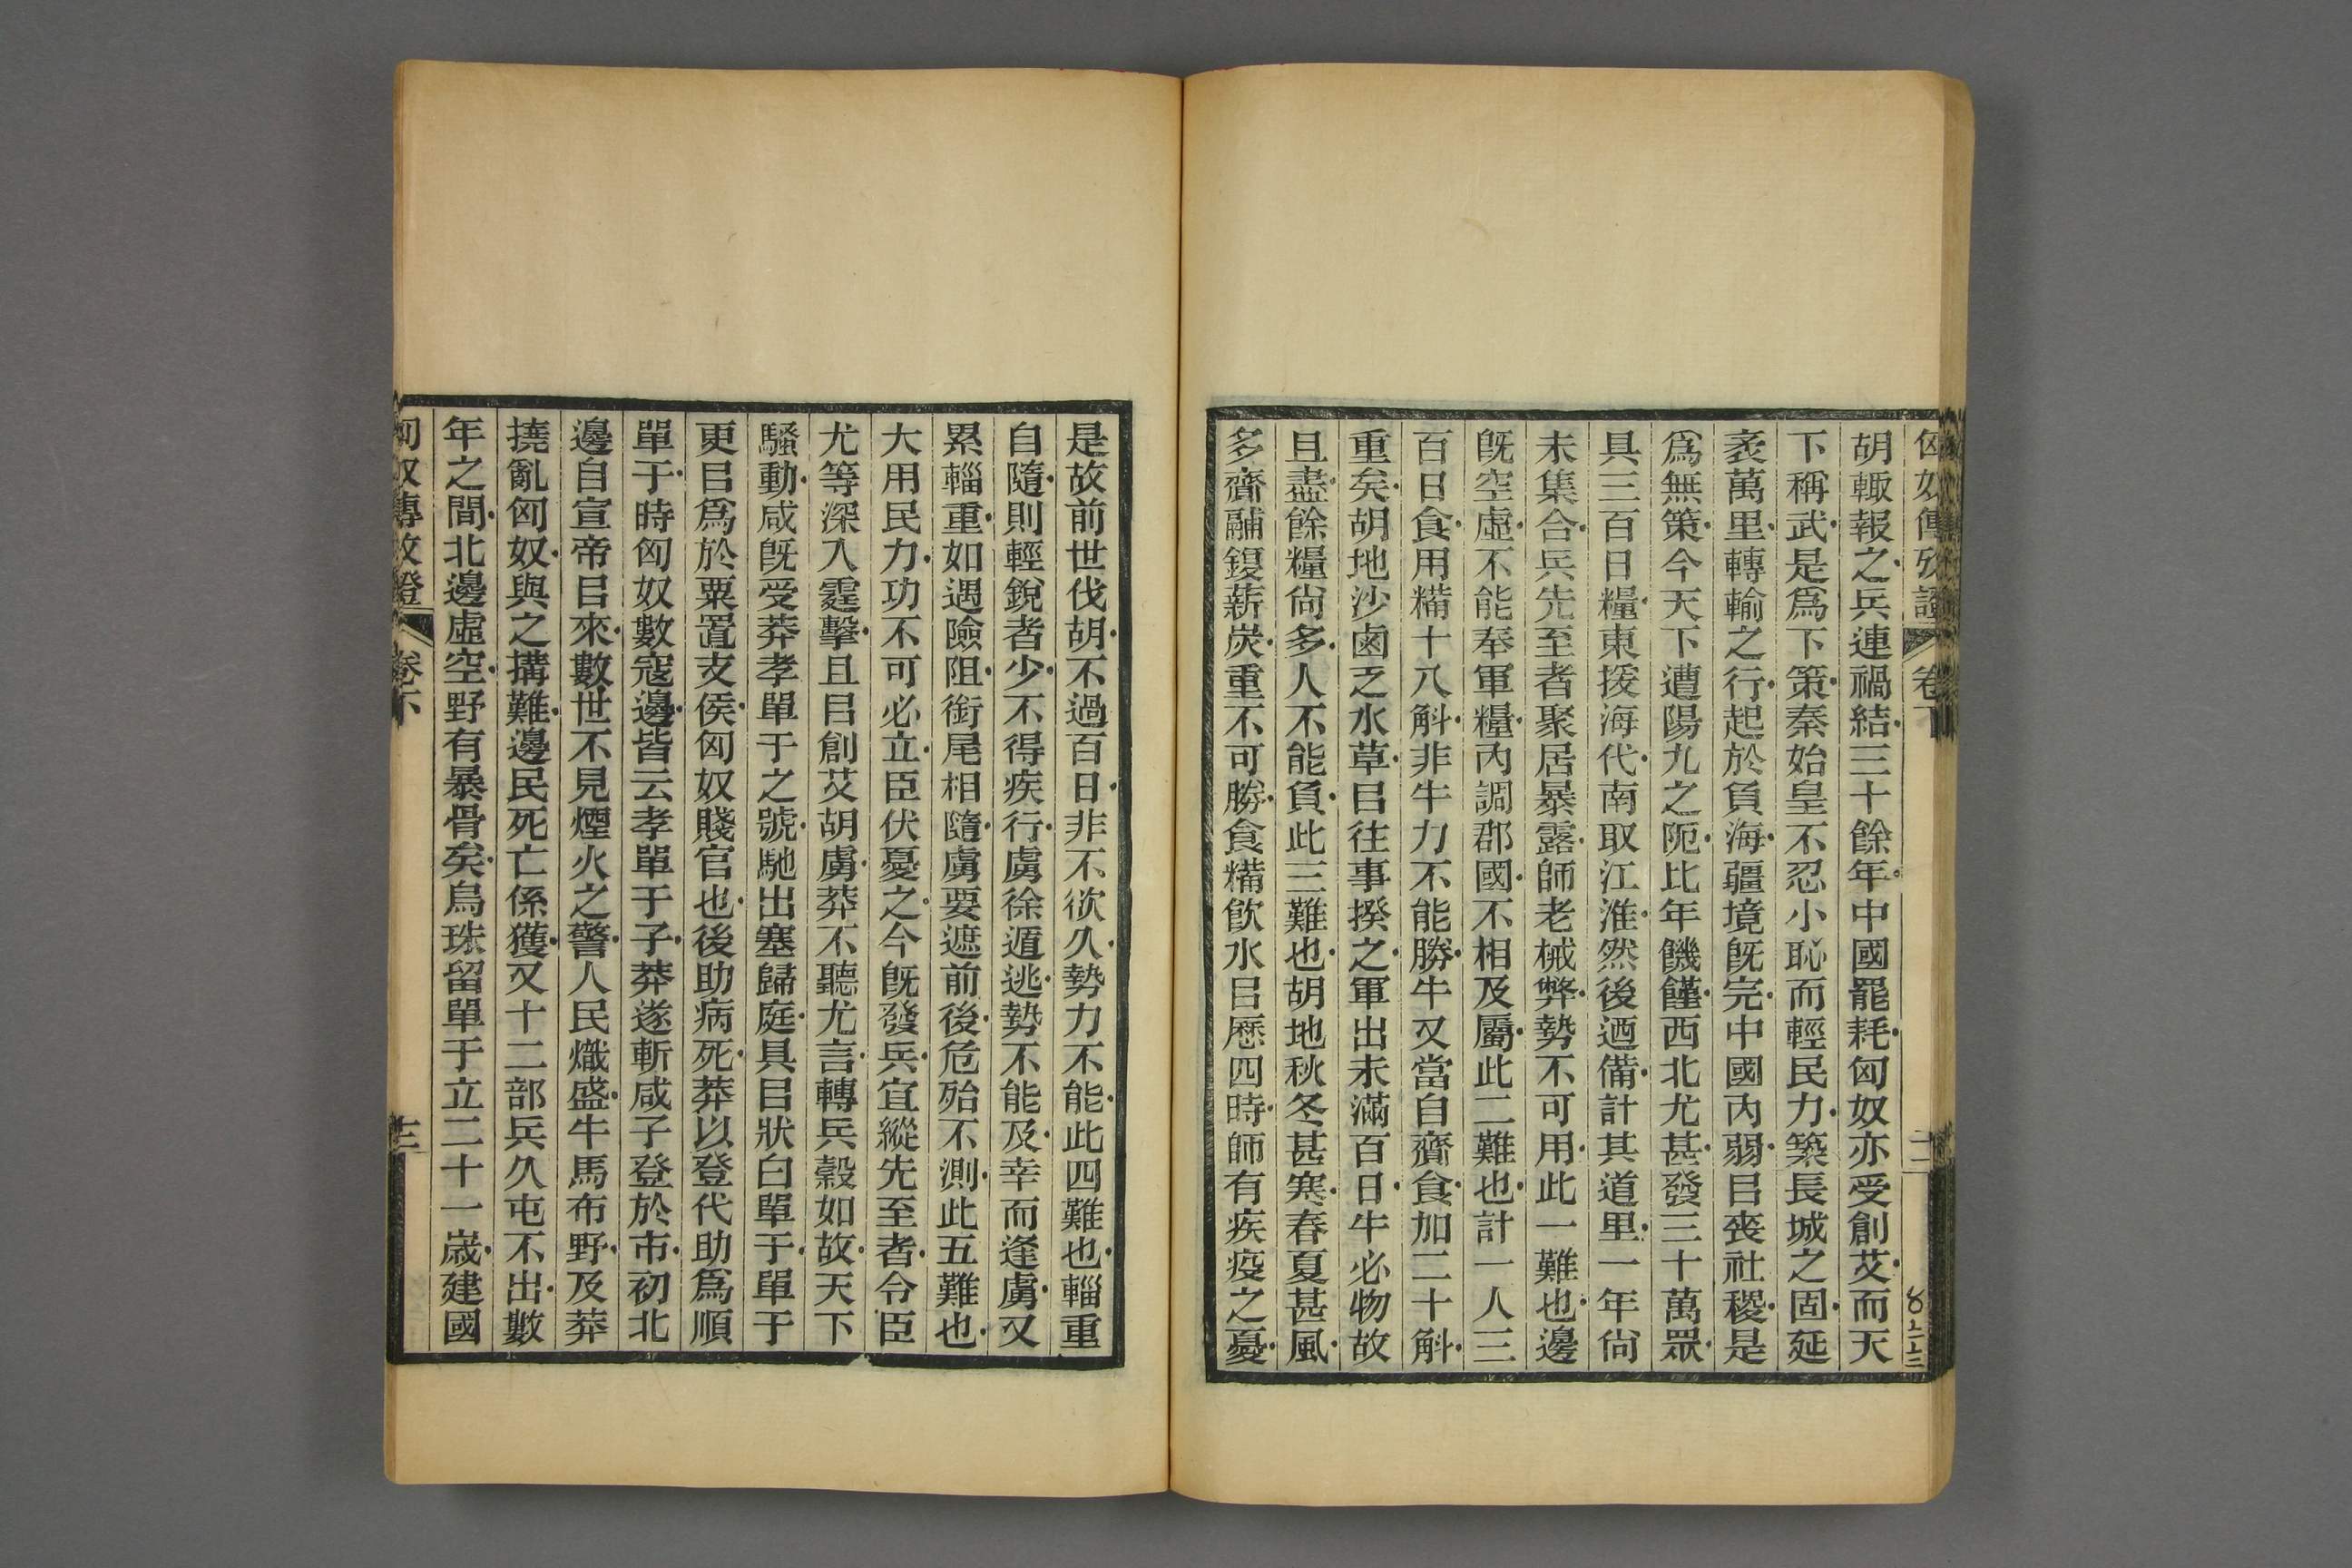 匈奴傳攷證 卷下
胡輙報之兵連禍結三十餘年中國罷耗匈奴亦受創艾而天
下稱武是爲下策秦始皇不忍小恥而輕民力築長城之固延
袤萬里轉輸之行起於負海疆境旣完中國內弱㠯喪社稷是
爲無策今天下遭陽九之阨比年饑饉西北尤甚發三十萬眾
具三百日糧東援海代南取江淮然後迺備計其道里一年尙
未集合兵先至者聚居暴露師老械弊勢不可用此一難也邊
旣空虛不能奉軍糧內調郡國不相及屬此二難也計一人三
百日食用糒十八斛非牛力不能勝牛又當自齎食加二十斛
重矣胡地沙鹵乏水草㠯往事揆之軍出未滿百日牛必物故
且盡餘糧尙多人不能負此三難也胡地秋冬甚寒春夏甚風
多齎鬴鍑薪炭重不可勝食糒飮水㠯歷四時師有疾疫之憂
是故前世伐胡不過百日非不欲久勢力不能此四難也輜重
自隨則輕銳者少不得疾行虜徐遁逃勢不能及幸而逢虜又
累輜重如遇險阻銜尾相隨虜要遮前後危殆不測此五難也
大用民力功不可必立臣伏憂之今旣發兵宜縱先至者令臣
尤等深入霆擊且㠯創艾胡虜莽不聽尤言轉兵穀如故天下
騷動咸旣受莽孝單于之號馳出塞歸庭具㠯狀白單于單于
更㠯爲於粟置支侯匈奴賤官也後助病死莽以登代助爲順
單于時匈奴數寇邊皆云孝單于子莽遂斬咸子登於市初北
邊自宣帝㠯來數世不見煙火之警人民熾盛牛馬布野及莽
撓亂匈奴與之搆難邊民死亡係獲又十二部兵久屯不出數
年之間北邊虛空野有暴骨矣烏珠留單于立二十一歲建國
匈奴傳攷證 卷下